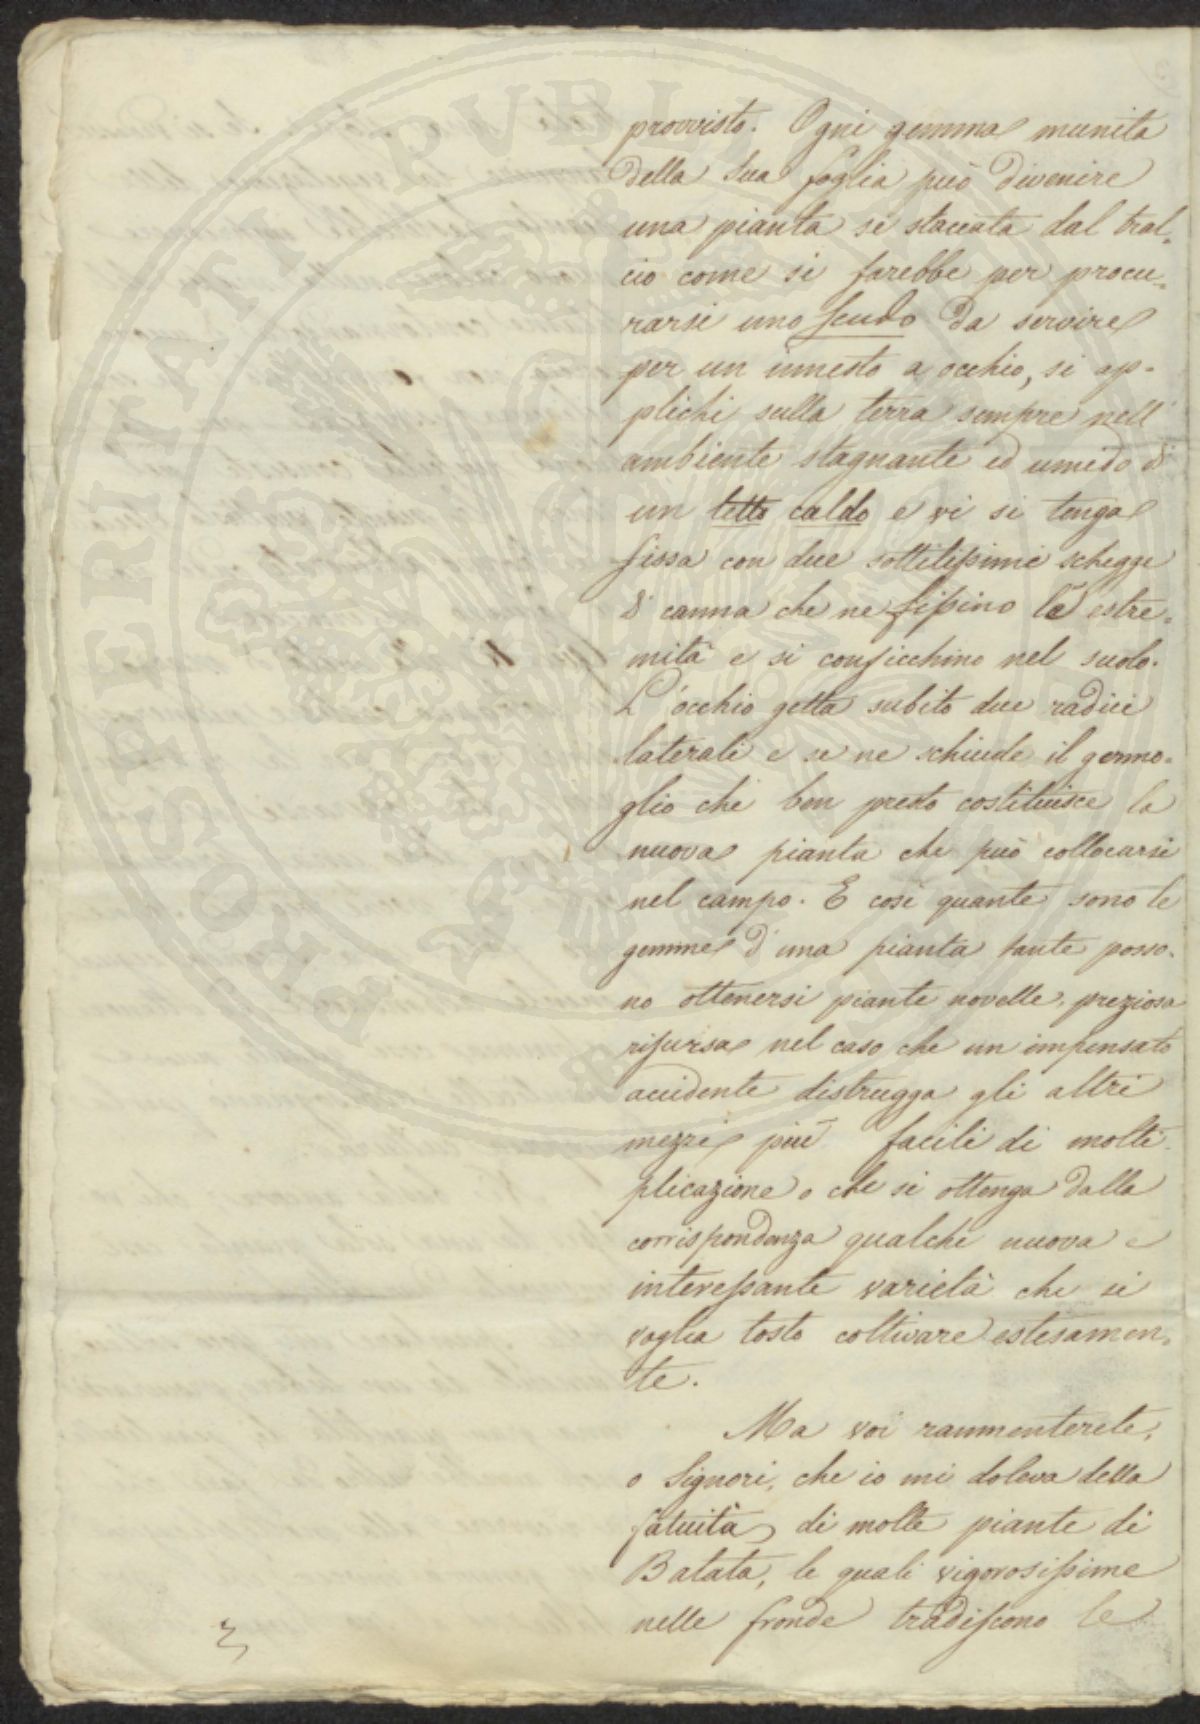 provvisto. Ogni gemma munita
della sua foglia può divenire
una pianta se staccata dal tral„
cio come si farebbe per procu„
rarsi uno scudo da servire
per un innesto a occhio, si ap-
plichi sulla terra sempre nell'
ambiente stagnante ed umido d'
un letto caldo e vi si tenga
fissa con due sottilissime schegge
di canna che ne fissino le estre„
mità e si conficchino nel suolo.
L'occhio getta subito due radici
laterali e se ne schiude il germo„
glio che ben presto costituisce la
nuova pianta che può collocarsi
nel campo. E così quante sono le
gemme d'una pianta tante posso„
no ottenersi piante novelle, preziosa
risorsa nel caso che un impensato
accidente distrugga gli altri
mezzi più facili di molti„
plicazione o che si ottenga dalla
corrispondenza qualche nuova e
interessante varietà che si
voglia tosto coltivare estesamen„
te.
Ma voi rammenterete,
o Signori, che io mi doleva della
fatuità di molte piante di
Batata, le quali vigorosissime
nelle fronde tradiscono le
PROSPERITATI PUBLICAE